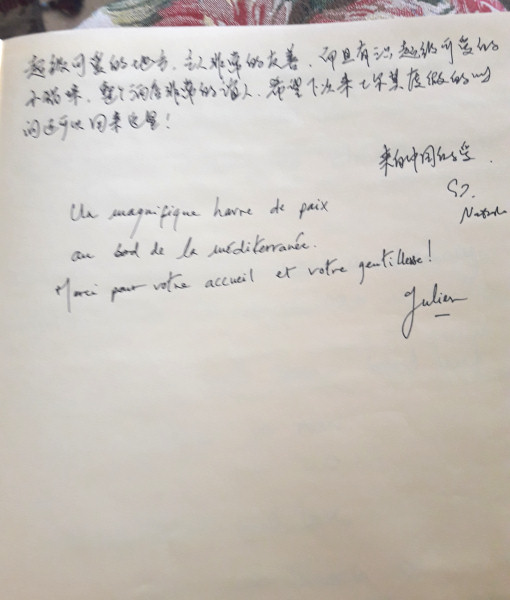 超级可爱的地方，主人非常的友善，而且有只超级可爱的
小猫咪，整个酒店非常的迷人，希望下次来土耳其度假的时
间还可以回来这里！
来自中国的爱.
Un magnifique havre de paix
au bord de la méditerranée.
Merci pour votre accueil et votre gentillesse!
Julien